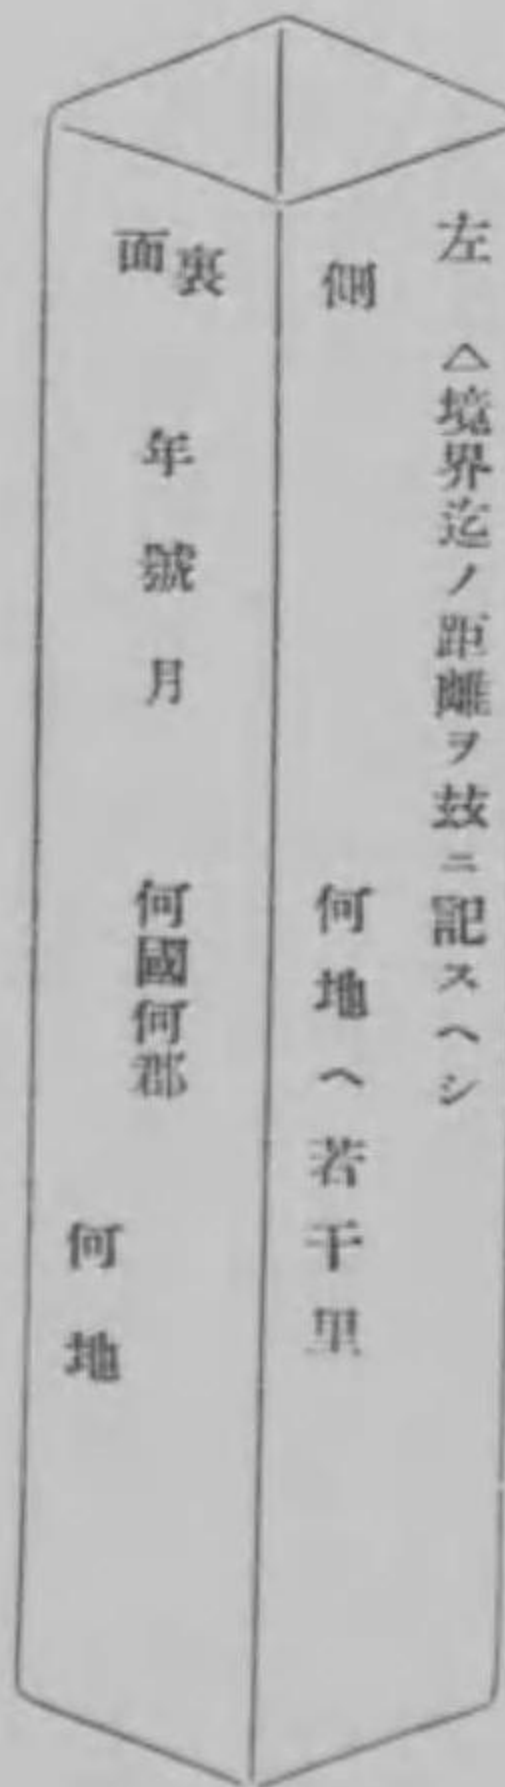 左側
△境界迄ノ距離ヲ玆ニ記スヘシ
何地ヘ若干里
裏面
年號月
何國何郡
何地